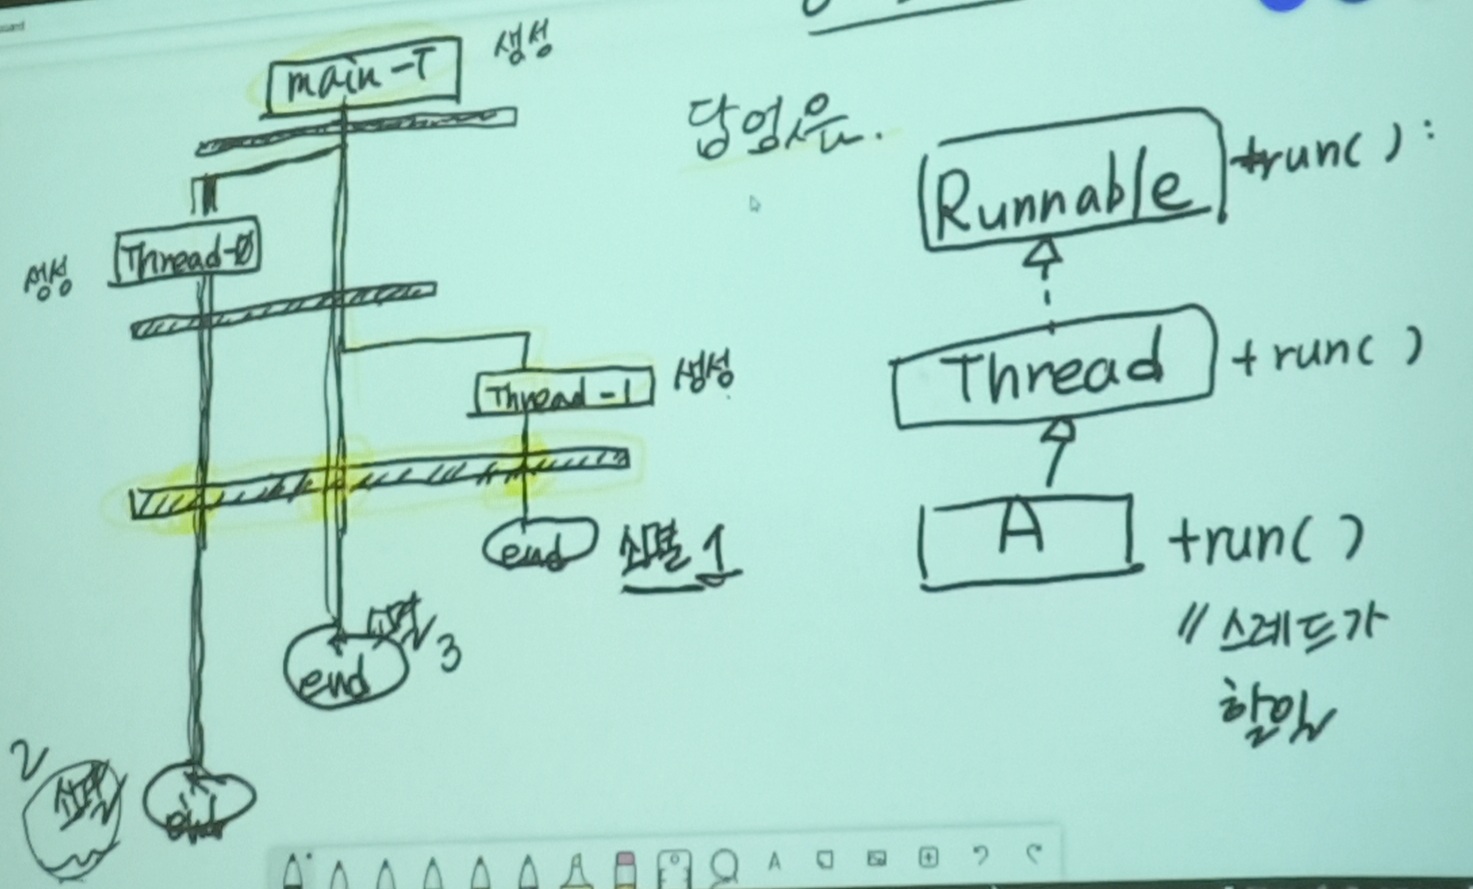 main-T
생성
Thread-0
생성
Thread-1
생성
end
소멸 1
end
소멸 3
2
소멸
end
답 없음.
Runnable
+run( ) :
Thread
+ run( )
A
+run( )
// 스레드가
할일
A